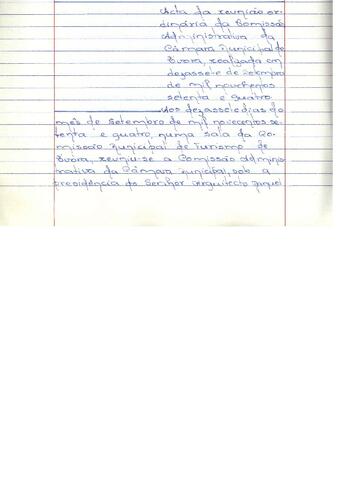 Acta da reunião or-
dinária da Comissão
Administrativa da
Câmara Municipal de
Évora, realizada em
dezassete de Setembro
de mil novecentos
setenta e quatro
Aos dezassete dias do
mês de Setembro de mil novecentos se-
tenta e quatro, numa sala da Co-
missão Municipal de Turismo de
Évora, reuniu-se a Comissão Adminis-
trativa da Câmara Municipal, sob a
presidência do Senhor Arquitecto Miguel